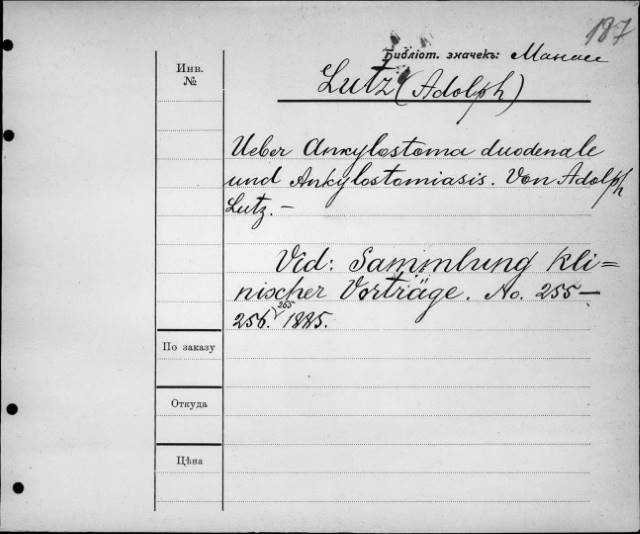 187
Библіот. значекъ: Манасе
Инв.
№
Lutz (Adolph)
Ueber Ankylostoma duodenale
und Ankylostomiasis. Von Adolph
Lutz. —
Vid: Sammlung kli=
nischer Vorträge. No. 255—
256. 265 1885.
По заказу
Откуда
Цѣна